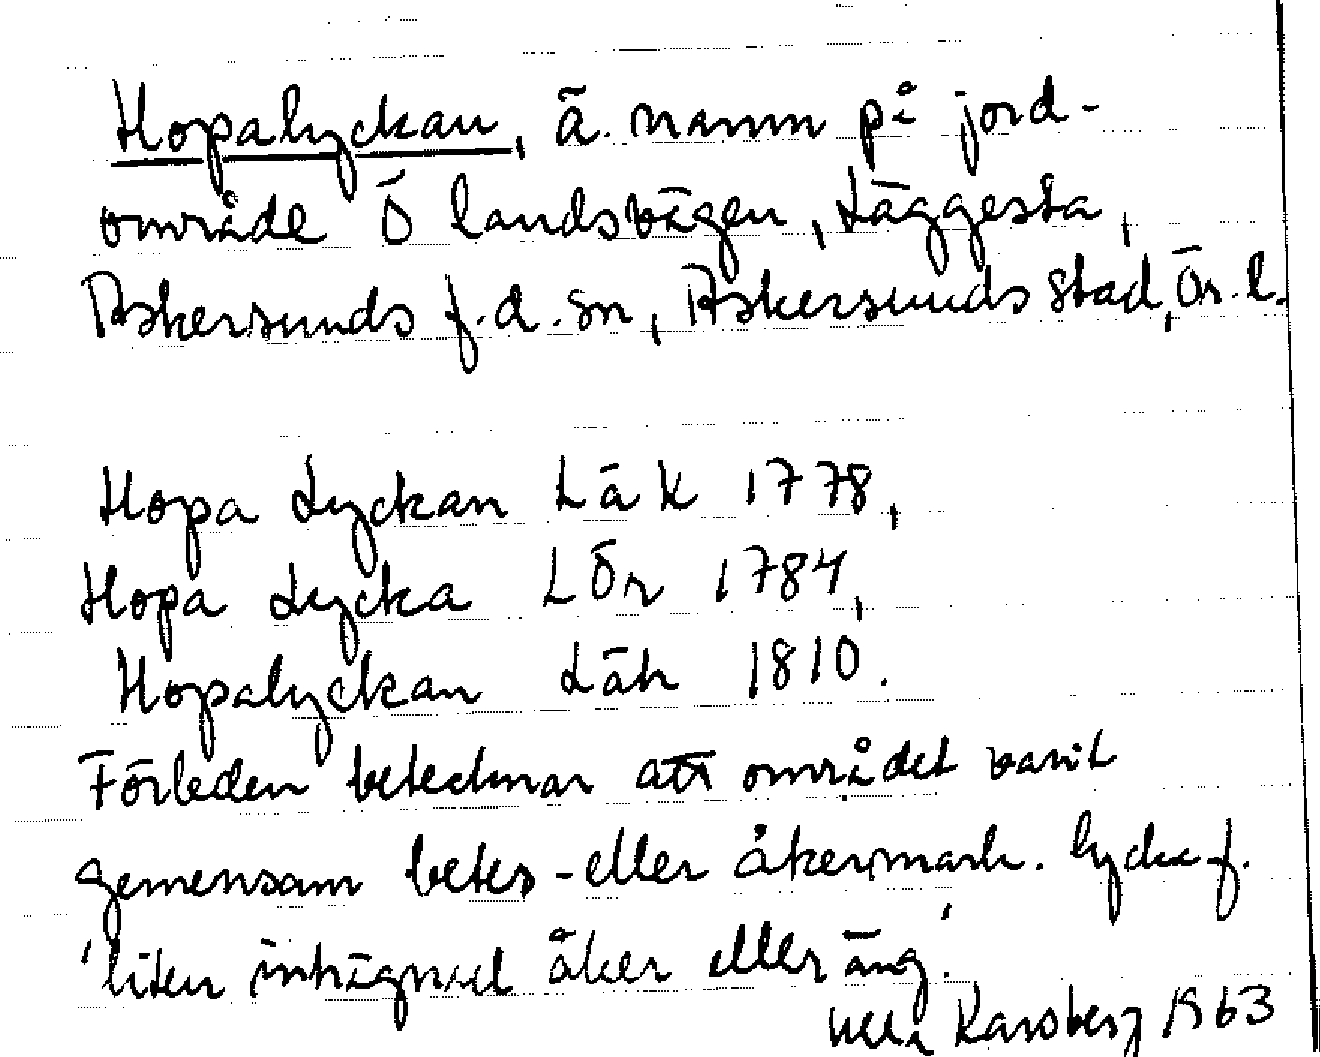 Hopalyckan, ä. namn på jord-
område Ö landsvägen, Läggesta,
Askersunds f.d. sn, Askersunds stad, Ör. l.
Hopa Lyckan LäK 1778,
Hopa Lycka LÖr 1784,
Hopalyckan Läh 1810.
Förleden betecknar att området varit
gemensam betes- eller åkermark. lycka f.
'liten inhägnad åker eller äng.'
1963